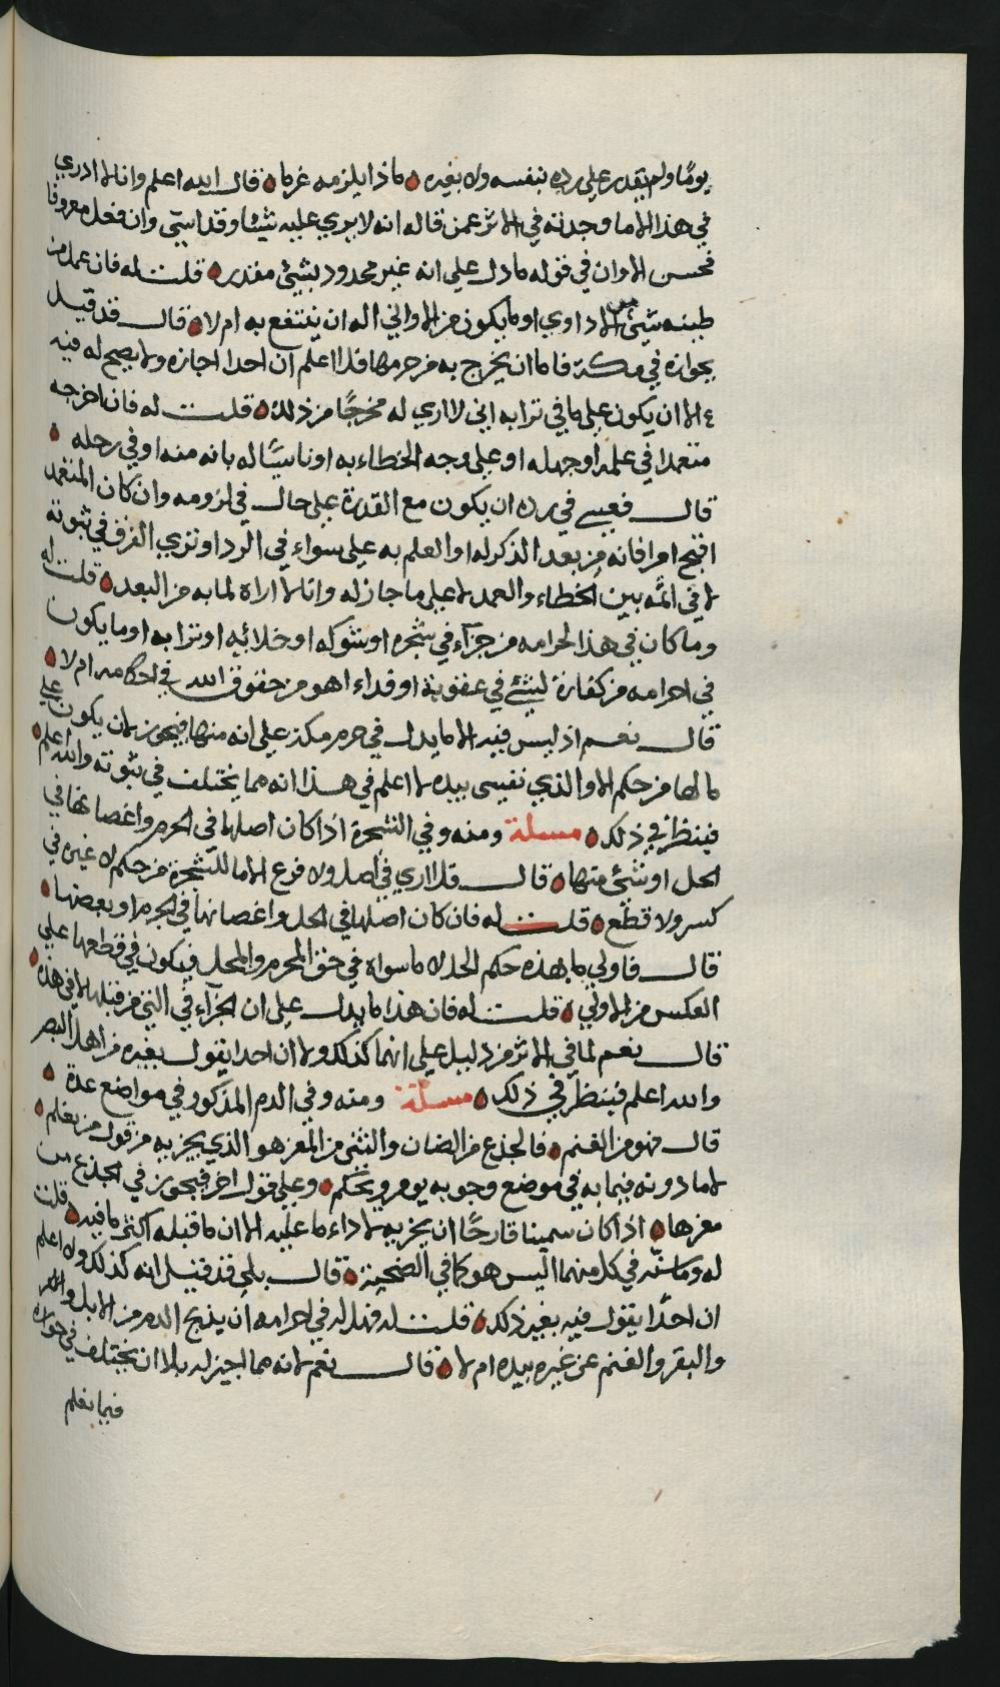 يومًا ولم يقدر على رده بنفسه ولا بغيره ماذا يلزمه غرما قال الله اعلم وانا لا ادري
في هذا الا ما وجدته في الاثر عمن قاله انه لا يرى عليه شيئا وقد اسى وان فعل معروفا
فحسن الا وان في قوله ما دل على انه غير محدود بشئ مقدر قلت له فان عمل من
طينه شئ من الاداوي او ما يكون من الاواني اله ان ينتفع به ام لا قال قد قيل
بجوازه في مكة فاما ان يخرج به من حرمها فلا اعلم ان احدا اجازه ولا يصح له فيه
الا ان يكون على ما في ترابه اني لا ارى له مخرجًا من ذلك قلت له فان اخرجه
متعمدا في علمه او جهله او على وجه الخطاء به او ناسيًا له بانه منه او في رحله
قال فعسى في رده ان يكون مع القدرة على حال في لزومه وان كان المتعمد
اقبح امرا فانه من بعد الذكر له او العلم به على سواء في الرد او ترى الفرق في ثبوته
لا في اثمه بين الخطاء والعمد لا على ما جاز له وانا لا اراه لما به من البعد قلت له
وما كان في هذا الحرامه من جزآء في شجره او شوكه او خلائه او ترابه او ما يكون
في احرامه من كفارة لشئ في عقوبة او فداء اهو من حقوق الله في احكامه ام لا
قال نعم اذ ليس فيه الا ما يدل في حرم مكة على انه منها فيجوز لان يكون على
ما لها من حكم الا والذي نفسي بيده لا اعلم في هذا انه مما يختلف في ثبوته والله اعلم
فينظر في ذلك مسلة ومنه وفي الشجرة اذا كان اصلها في الحرم واغصانها في
الحل او شئ منها قال فلا ارى في اصل ولا فرع الا ما للشجرة من حكم لا غيره في
كسر ولا قطع قلت له فان كان اصلها في الحل واغصانها في الحرم او بعضها
قال فاولى ما بهذه حكم الحل لا ما سواه في حق المحرم والمحل فيكون في قطعها على
العكس من الاولى قلت له فان هذا ما يدل على ان الجزآء في التي من قبلها لا في هذه
قال نعم لما في الاثر من دليل على انها كذلك ولا ان احدا يقول بغيره من اهل البصر
والله اعلم فينظر في ذلك مسئلة ومنه وفي الدم المذكور في مواضع عدة
قال فهو من الغنم فالجذع من الضان والثني من المعز هو الذي يجز به من قول من يعلم
لا ما دونه فيما به في موضع وجوبه يومر ويحكم وعلى قول اخر فيجوز في الجذع من
معزها اذا كان سمينا قارحًا ان يجزيه لاداء ما عليه الا ان ما قبله اكثر ما فيه قلت
له وما سنه في كل منهما اليس هو كما في الضحية قال بلى قد قيل انه كذلك ولا اعلم
ان احدًا يقول فيه بغير ذلك قلت له فهل له في احرامه ان يذبح الدم من الابل
والبقر والغنم عن غيره بيده ام لا قال نعم لانه مما اجيز له بلا ان يختلف في جوازه
فيما نعلم